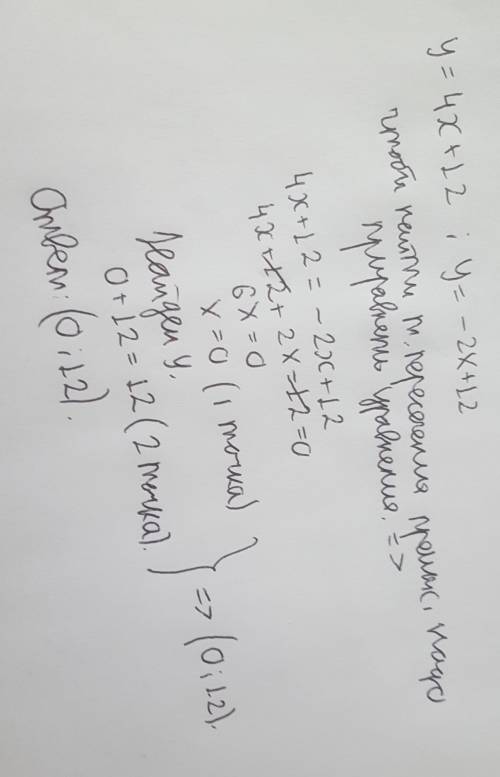 y = 4x + 12 ; y = -2x+12
чтобы найти т. пересечения прямых, надо
приравнять уравнения. =>
4x+12 = -2x+12
4x+12+2x-12=0
6x=0
x=0 (1 точка)
Найдем y.
0+12=12 (2 точка).
} => (0;12).
Ответ: (0;12).